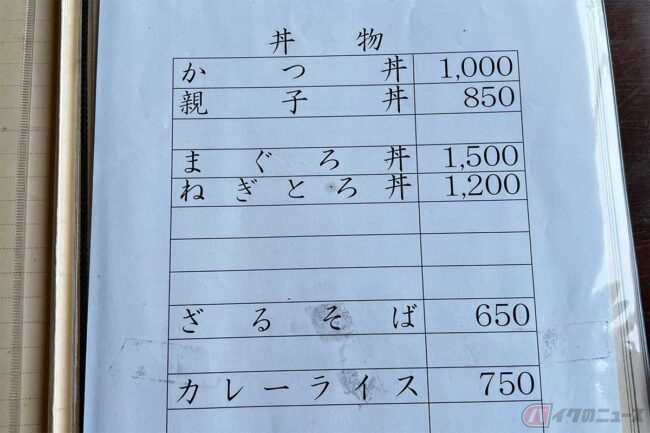 丼物
かつ丼 1,000
親子丼 850
まぐろ丼 1,500
ねぎとろ丼 1,200
ざるそば 650
カレーライス 750
バイクのニュース